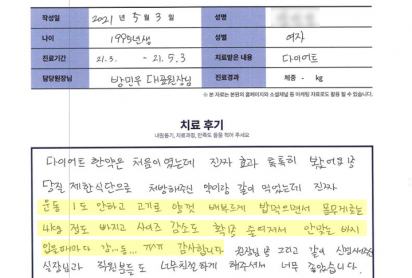 작성일 2021 년 5 월 3 일 성명
나이 1995년생 성별 여자
진료기간 21.3. - 21.5.3 치료받은 내용 다이어트
담당원장님 방민우 대표원장님 진료경과 체중 - kg
※ 본 자료는 본원의 홈페이지와 소셜채널 등 마케팅 자료로도 활용 될 수 있습니다.
치료 후기
내원동기, 치료과정, 만족도 등을 적어 주세요
다이어트 한약은 처음이였는데 진짜 효과 톡톡히 봤어요!
당질 제한식단으로 처방해주신 약이랑 같이 먹었는데 진짜
운동 1도 안하고 고기로 양껏 배부르게 밥먹으면서 몸무게는
4kg 정도 빠지고 사이즈 감소도 확 줄여져서 안맞는 바지
입을때마다 감..동.. 감사합니다 원장님 그리고 같이
실장님과 직원분들도 너무친절하게 해주셔서 너무 좋았습니다.